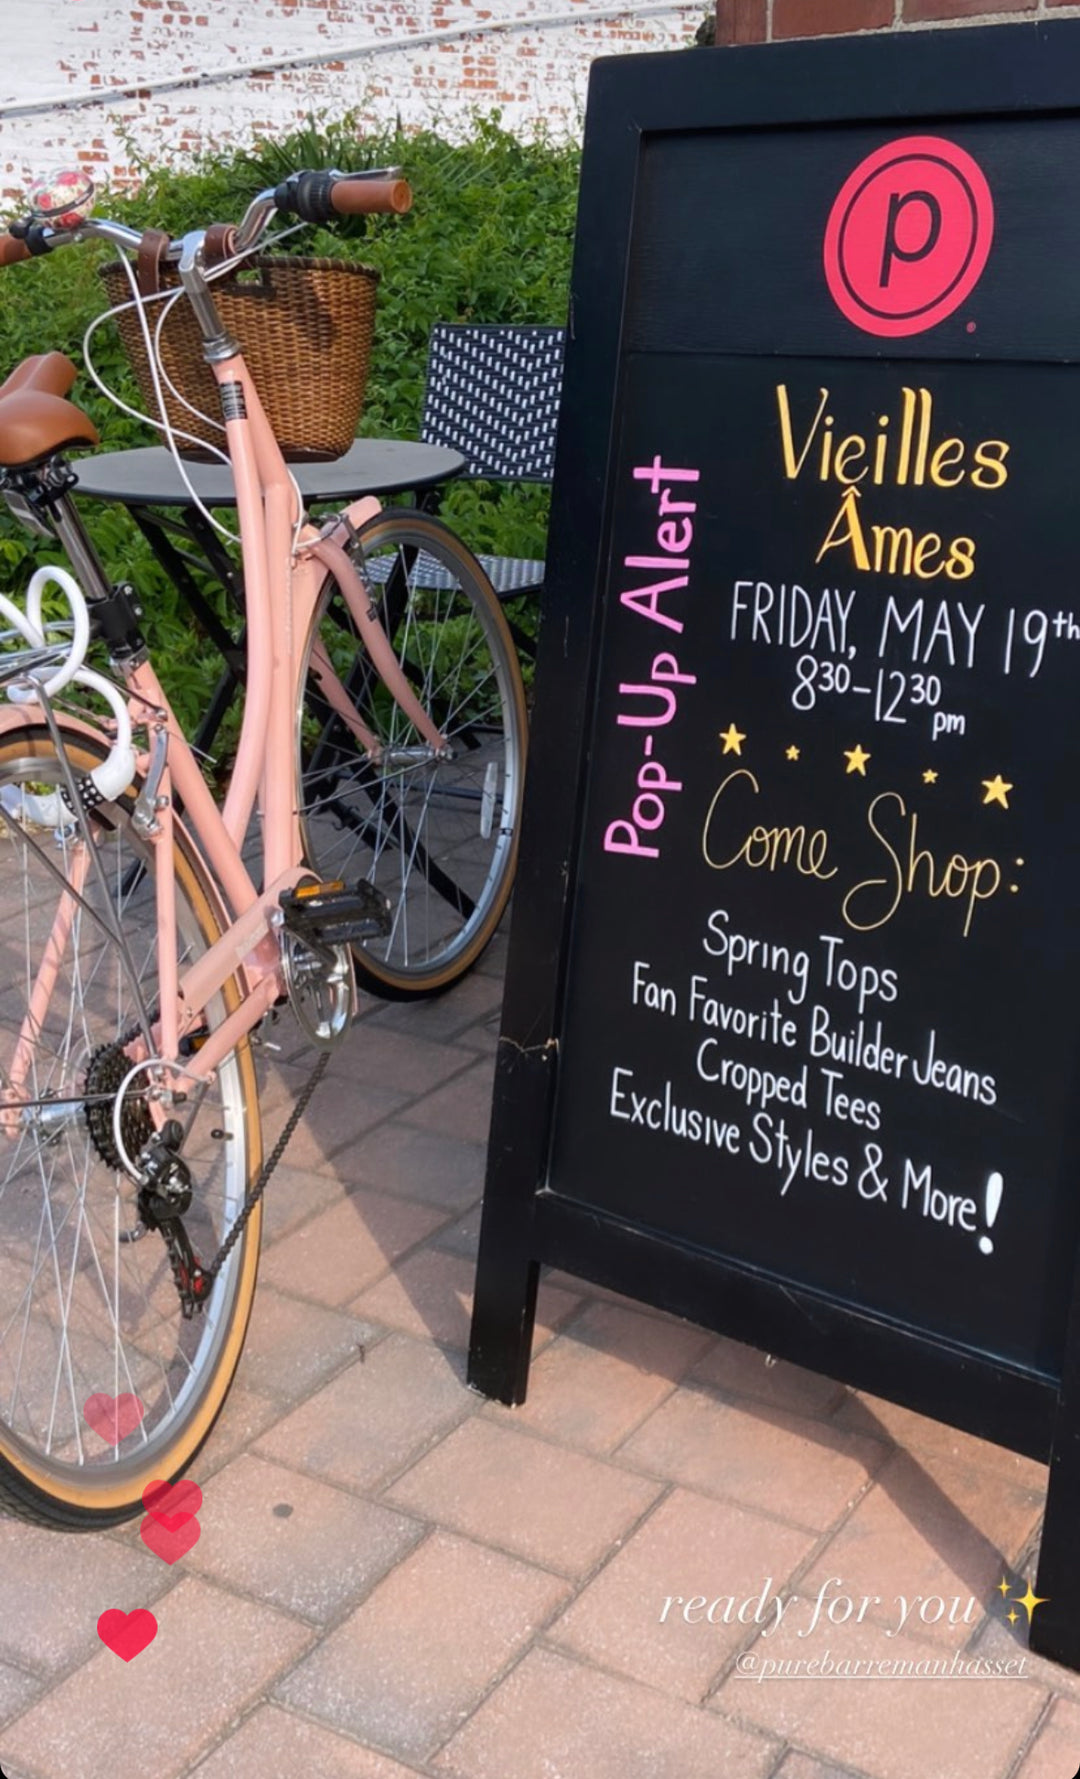 p
Pop-Up Alert
Vieilles
Âmes
FRIDAY, MAY 19th
830-1230 pm
Come Shop:
Spring Tops
Fan Favorite Builder Jeans
Cropped Tees
Exclusive Styles & More!
ready for you ✨
@purebarremanhasset